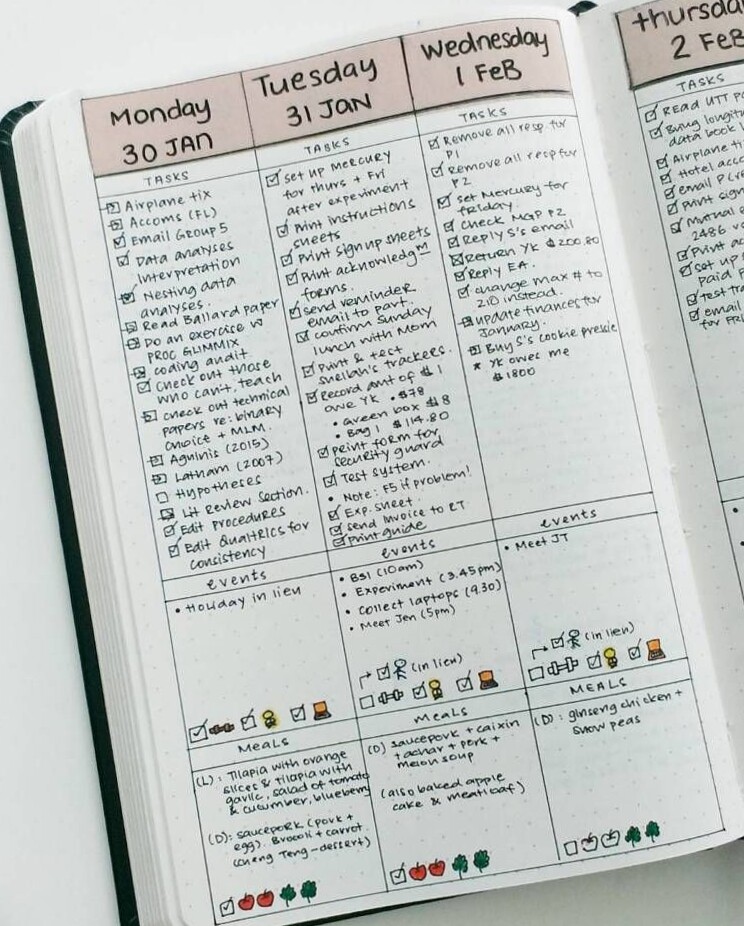 Monday
30 JAN
TASKS
Airplane tix
Accoms (FL)
Email Group 5
Data analyses
interpretation
Nesting data
analyses.
Read Ballard paper
Do an exercise w
PROC GLIMMIX
coding audit
Check out those
who can't, teach
check out technical
papers re: binary
choice + MLM.
Aguinis (2015)
Latham (2007)
Hypotheses
Lit Review Section.
Edit Procedures
Edit Qualtrics for
consistency
events
• Holiday in lieu
MEALS
(L): Tilapia with orange
slices & tilapia with
garlic, salad of tomato
& cucumber, blueberry
(D): saucepork (pork +
egg). Brocoli + carrot.
(Cheng Teng - dessert)
Tuesday
31 JAN
TASKS
Set up MERCURY
for thurs + Fri
after experiment
Print instructions
sheets
Print sign up sheets
Print acknowledgmt
forms.
send reminder
email to part.
confirm Sunday
lunch with Mom
Print & test
Sheilah's trackers.
Record amt of $ I
owe YK • $78
• Green box $18
• Bag 1 $114.80
print form for
security guard
Test system.
• Note: F5 if problem!
Exp. sheet.
send Invoice to ET
Print guide
events
• BSI (10am)
• Experiment (3.45pm)
• Collect laptops (9.30)
• Meet Jen (5pm)
(in lieu)
MEALS
(D) saucepork + caixin
+ achar + pork +
melon soup
(also baked apple
cake & meatloaf)
Wednesday
1 FEB
TASKS
Remove all resp. for
P1
Remove all resp for
P2
set Mercury for
friday.
Check MGP P2
Reply S's email
Return YK $200.80
Reply EA.
change max # to
210 instead.
update finances for
January.
Buy S's cookie pressie
* YK owes me
$1800
events
• Meet JT
(in lieu)
MEALS
(D): ginseng chicken +
snow peas
thursda
2 FEB
TASKS
READ UTT
Bring longit
data book
Airplane ti
Hotel acc
email P
Print sign
Mutual
2486
Print ac
set up
paid
test tra
email
for FRI